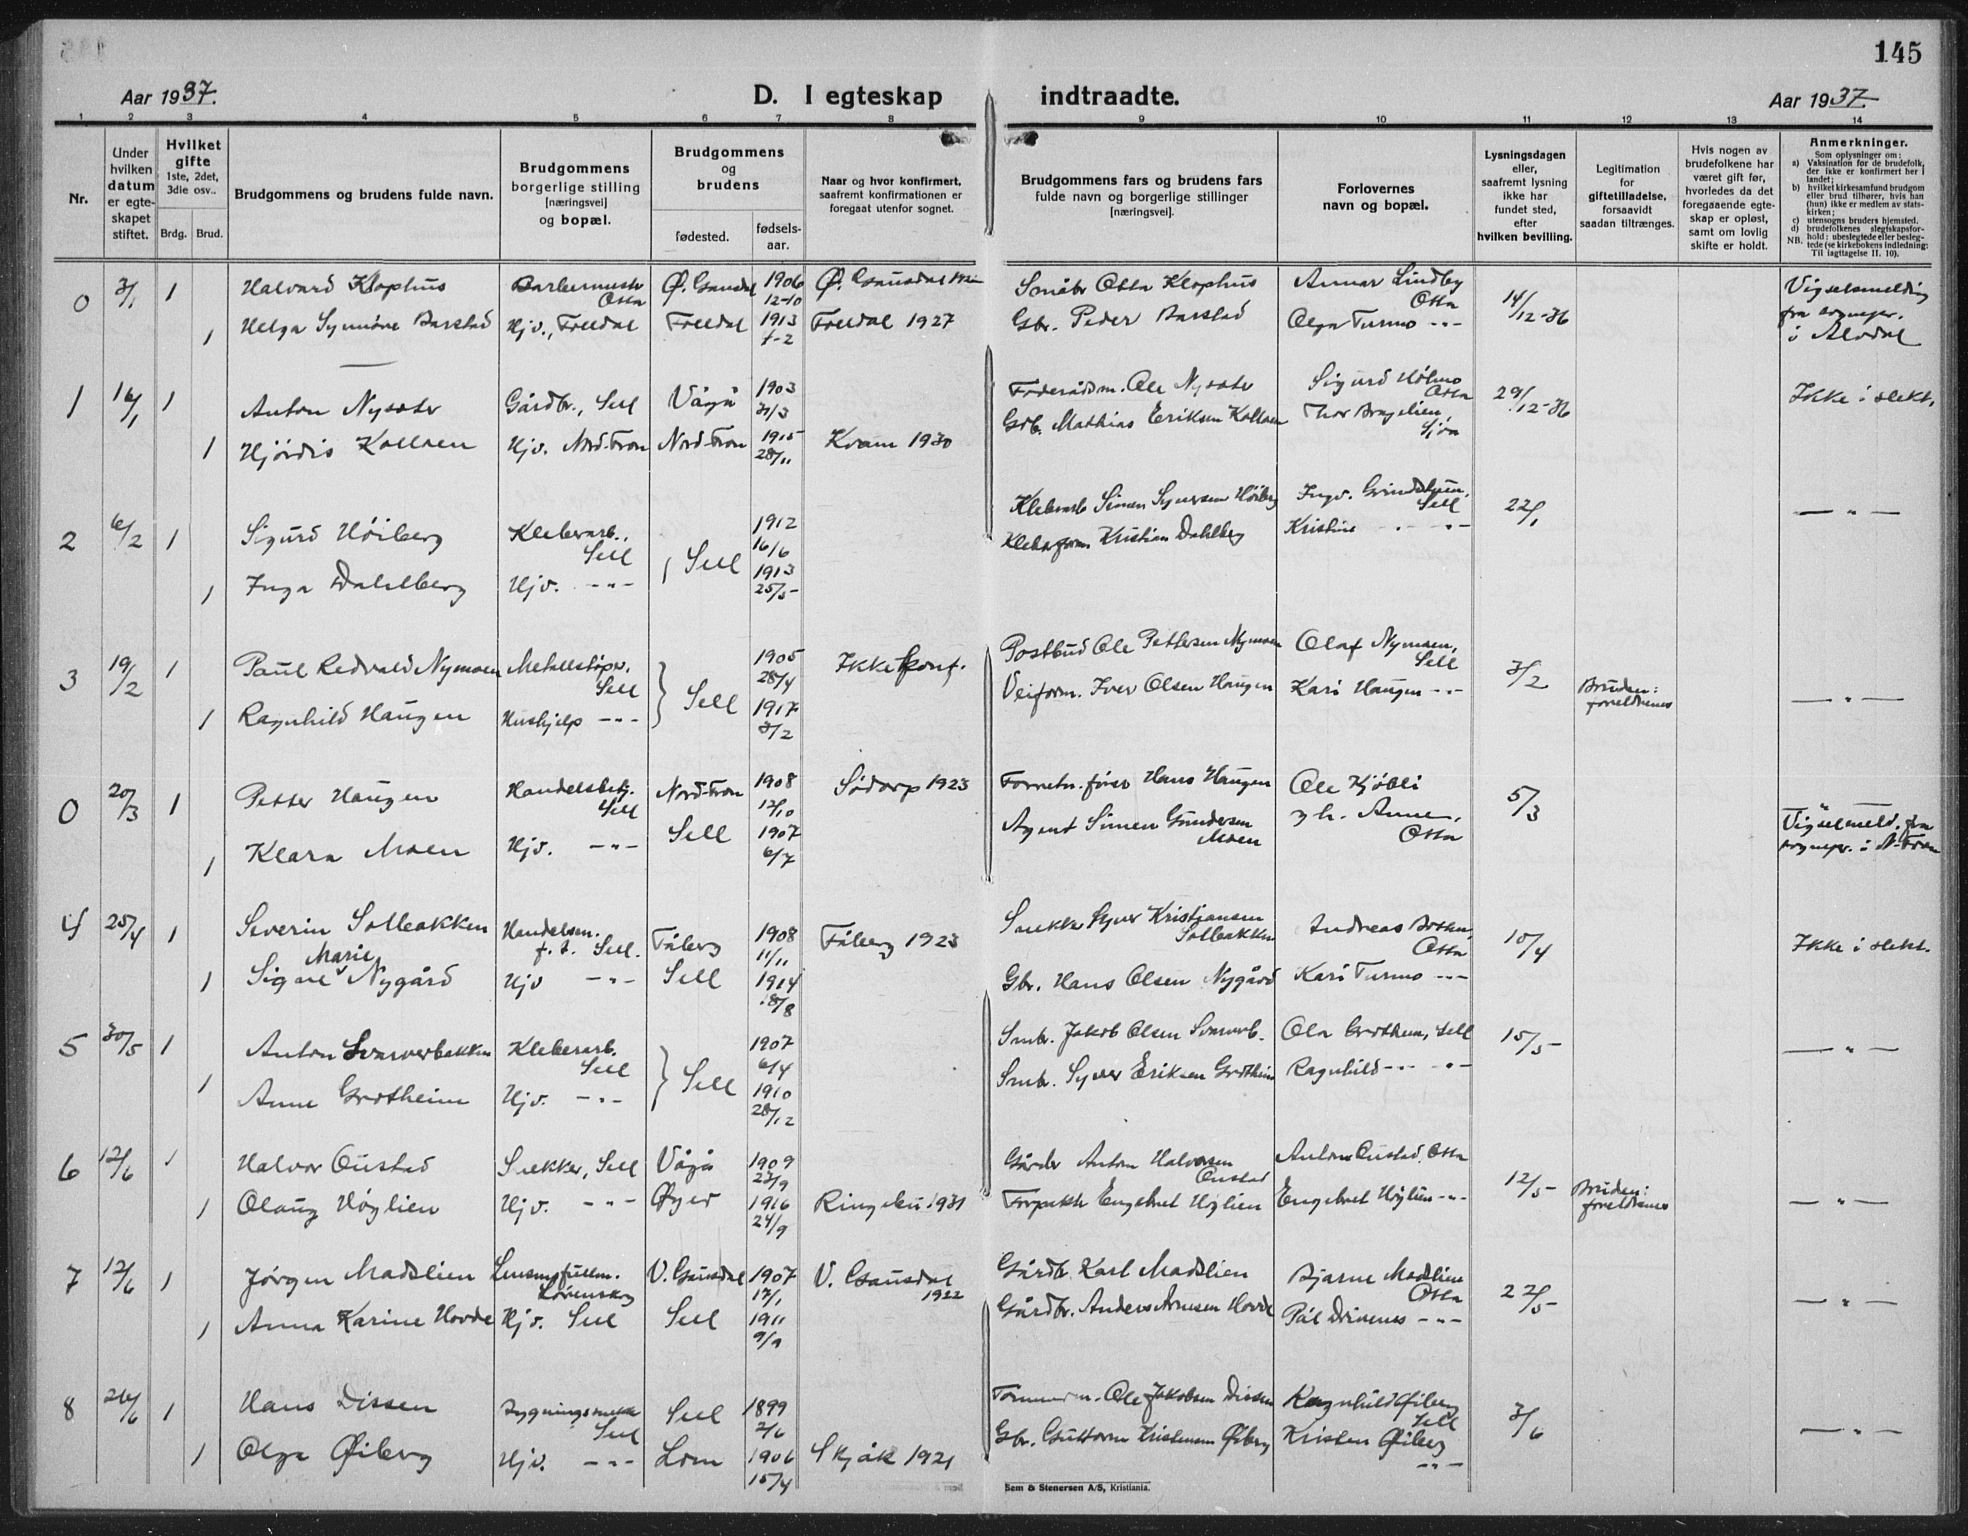 145
Aar 1937.
D. I egteskap indtraadte.
Aar 1937
1 2 3 4 5 6 7 8 9 10 11 12 13 14
Nr.
Under hvilken datum er egteskapet stiftet.
Hvilket gifte 1ste, 2det, 3die osv..
Brdg. Brud.
Brudgommens og brudens fulde navn.
Brudgommens borgerlige stilling [næringsvei] og bopæl.
Brudgommens og brudens
fødested.
fødselsaar.
Naar og hvor konfirmert, saafremt konfirmationen er foregaat utenfor sognet.
Brudgommens fars og brudens fars fulde navn og borgerlige stillinger [næringsvei].
Forlovernes navn og bopæl.
Lysningsdagen eller, saafremt lysning ikke har fundet sted, efter hvilken bevilling.
Legitimation for giftetilladelse, forsaavidt saadan tiltrænges.
Hvis nogen av brudefolkene har været gift før, hvorledes da det foregaaende egteskap er opløst, samt om lovlig skifte er holdt.
Anmerkninger.
Som oplysninger om:
a) Vaksination for de brudefolk, der ikke er konfirmert her i landet;
b) hvilket kirkesamfund brudgom eller brud tilhører, hvis han (hun) ikke er medlem av statskirken;
c) utensogns bruders hjemsted.
d) brudefolkenes slegtskapsforhold: ubeslegtede eller beslegtede (se kirkebokens indledning:
NB. Til iagttagelse II. 10).
0 3/1 1 Halvard Klophus Barbermester Otta Ø. Gausdal 1906 12-10 Ø. Gausdal Småbr Otta Klophus Annar Lindby Otta 14/12-36 Vigselsmelding fra sognepr. i Alvdal
1 Helga Synnöve Barstad Hjv., Folldal Folldal 1913 7-2 Folldal 1927 Gbr. Peder Barstad Olga Turmo -"-
1 16/1 1 Anton Nysæter Gårdbr., Sell Vågå 1903 31/3 Föderådsm. Ole Nysæter Sigurd Holmo Otta 29/12-36 Ikke i slekt.
1 Hjördis Kolloen Hjv. Nord-Fron Nord-Fron 1915 28/11 Kvam 1930 Grb. Mathias Eriksen Kolloen Thor Brugelien, Sjoa
2 6/2 1 Sigurd Höiberg Kleberarb., Sell Sell 1912 16/6 Kleberarb Simen Syversen Höiberg Ingv. Grindstuen, Sell 22/1 — " —
1 Inga Dahlberg Hjv. -"- 1913 25/5 Kleberform. Kristian Dahlberg Kristine -"- -"-
3 19/2 1 Paul Redvald Nymoen Metallstöper, Sell Sell 1905 28/4 Ikke konf. Postbud Ole Pettersen Nymoen Olaf Nymoen, Sell 3/2 Bruden: foreldrenes — " —
1 Ragnhild Haugen Hushjelp -"- 1917 3/2 Veiform. Iver Olsen Haugen Kari Haugen -"-
0 20/3 1 Petter Haugen Handelsbetj. Sell Nord-Fron 1908 12/10 Södorp 1923 Forretn.förer Hans Haugen Ole Kjöbli 5/3 "
1 Klara Moen Hjv. -"- Sell 1907 6/7 Agent Simen Gundersen Moen og h. Anne, Otta Vigselmeld. fra sognepr. i N-Fron
4 25/4 1 Severin Solbakken Handelsm. f. t. Sell. Fåberg 1908 11/11 Fåberg 1923 Snekker Syver Kristiansen Solbakken Andreas Botten, Otta 10/4 Ikke i slekt.
1 Signe Marie Nygård Hjv -"- Sell 1914 18/8 Gbr. Hans Olsen Nygård Kari Turmo -"-
5 30/5 1 Anton Svarverbakken Kleberarb. Sell Sell 1907 6/4 Smbr. Jakob Olsen Svarverb. Ola Grotheim, Sell 15/5 — " —
1 Anne Grotheim Hjv. -"- 1910 28/12 Smbr. Syver Eriksen Grotheim Ragnhild -"- -"-
6 12/6 1 Halvor Oustad Snekker, Sell Vågå 1909 23/9 Gårdbr Anton Halvorsen Oustad Anton Oustad, Otta 12/5 Bruden: foreldrenes — " —
1 Olaug Höglien Hjv. -"- Øyer 1916 24/9 Ringebu 1931 Forpakter Engebret Höglien Engebret Höglien -"-
7 12/6 1 Jörgen Madslien Lensmsfullm. Lörenskog V. Gausdal 1907 17/1 V. Gausdal 1922 Gårdbr. Karl Madslien Bjarne Madslien Otta 22/5 — " —
1 Anna Karine Hovde Hjv. Sell Sell 1911 9/9 Gårdbr. Anders Arnesen Hovde Pål Drivenes -"-
8 26/6 1 Hans Dissen Bygningssnekk Sell Sell 1899 2/6 Tömmerm. Ole Jakobsen Dissen Ragnhild Øiberg Sell 3/6 — " —
1 Olga Øiberg Hjv. -"- Lom 1906 15/4 Skjåk 1921 Gbr. Guttorm Kristensen Øiberg Kristen Øiberg -"-
Sem & Stenersen A/S, Kristiania.